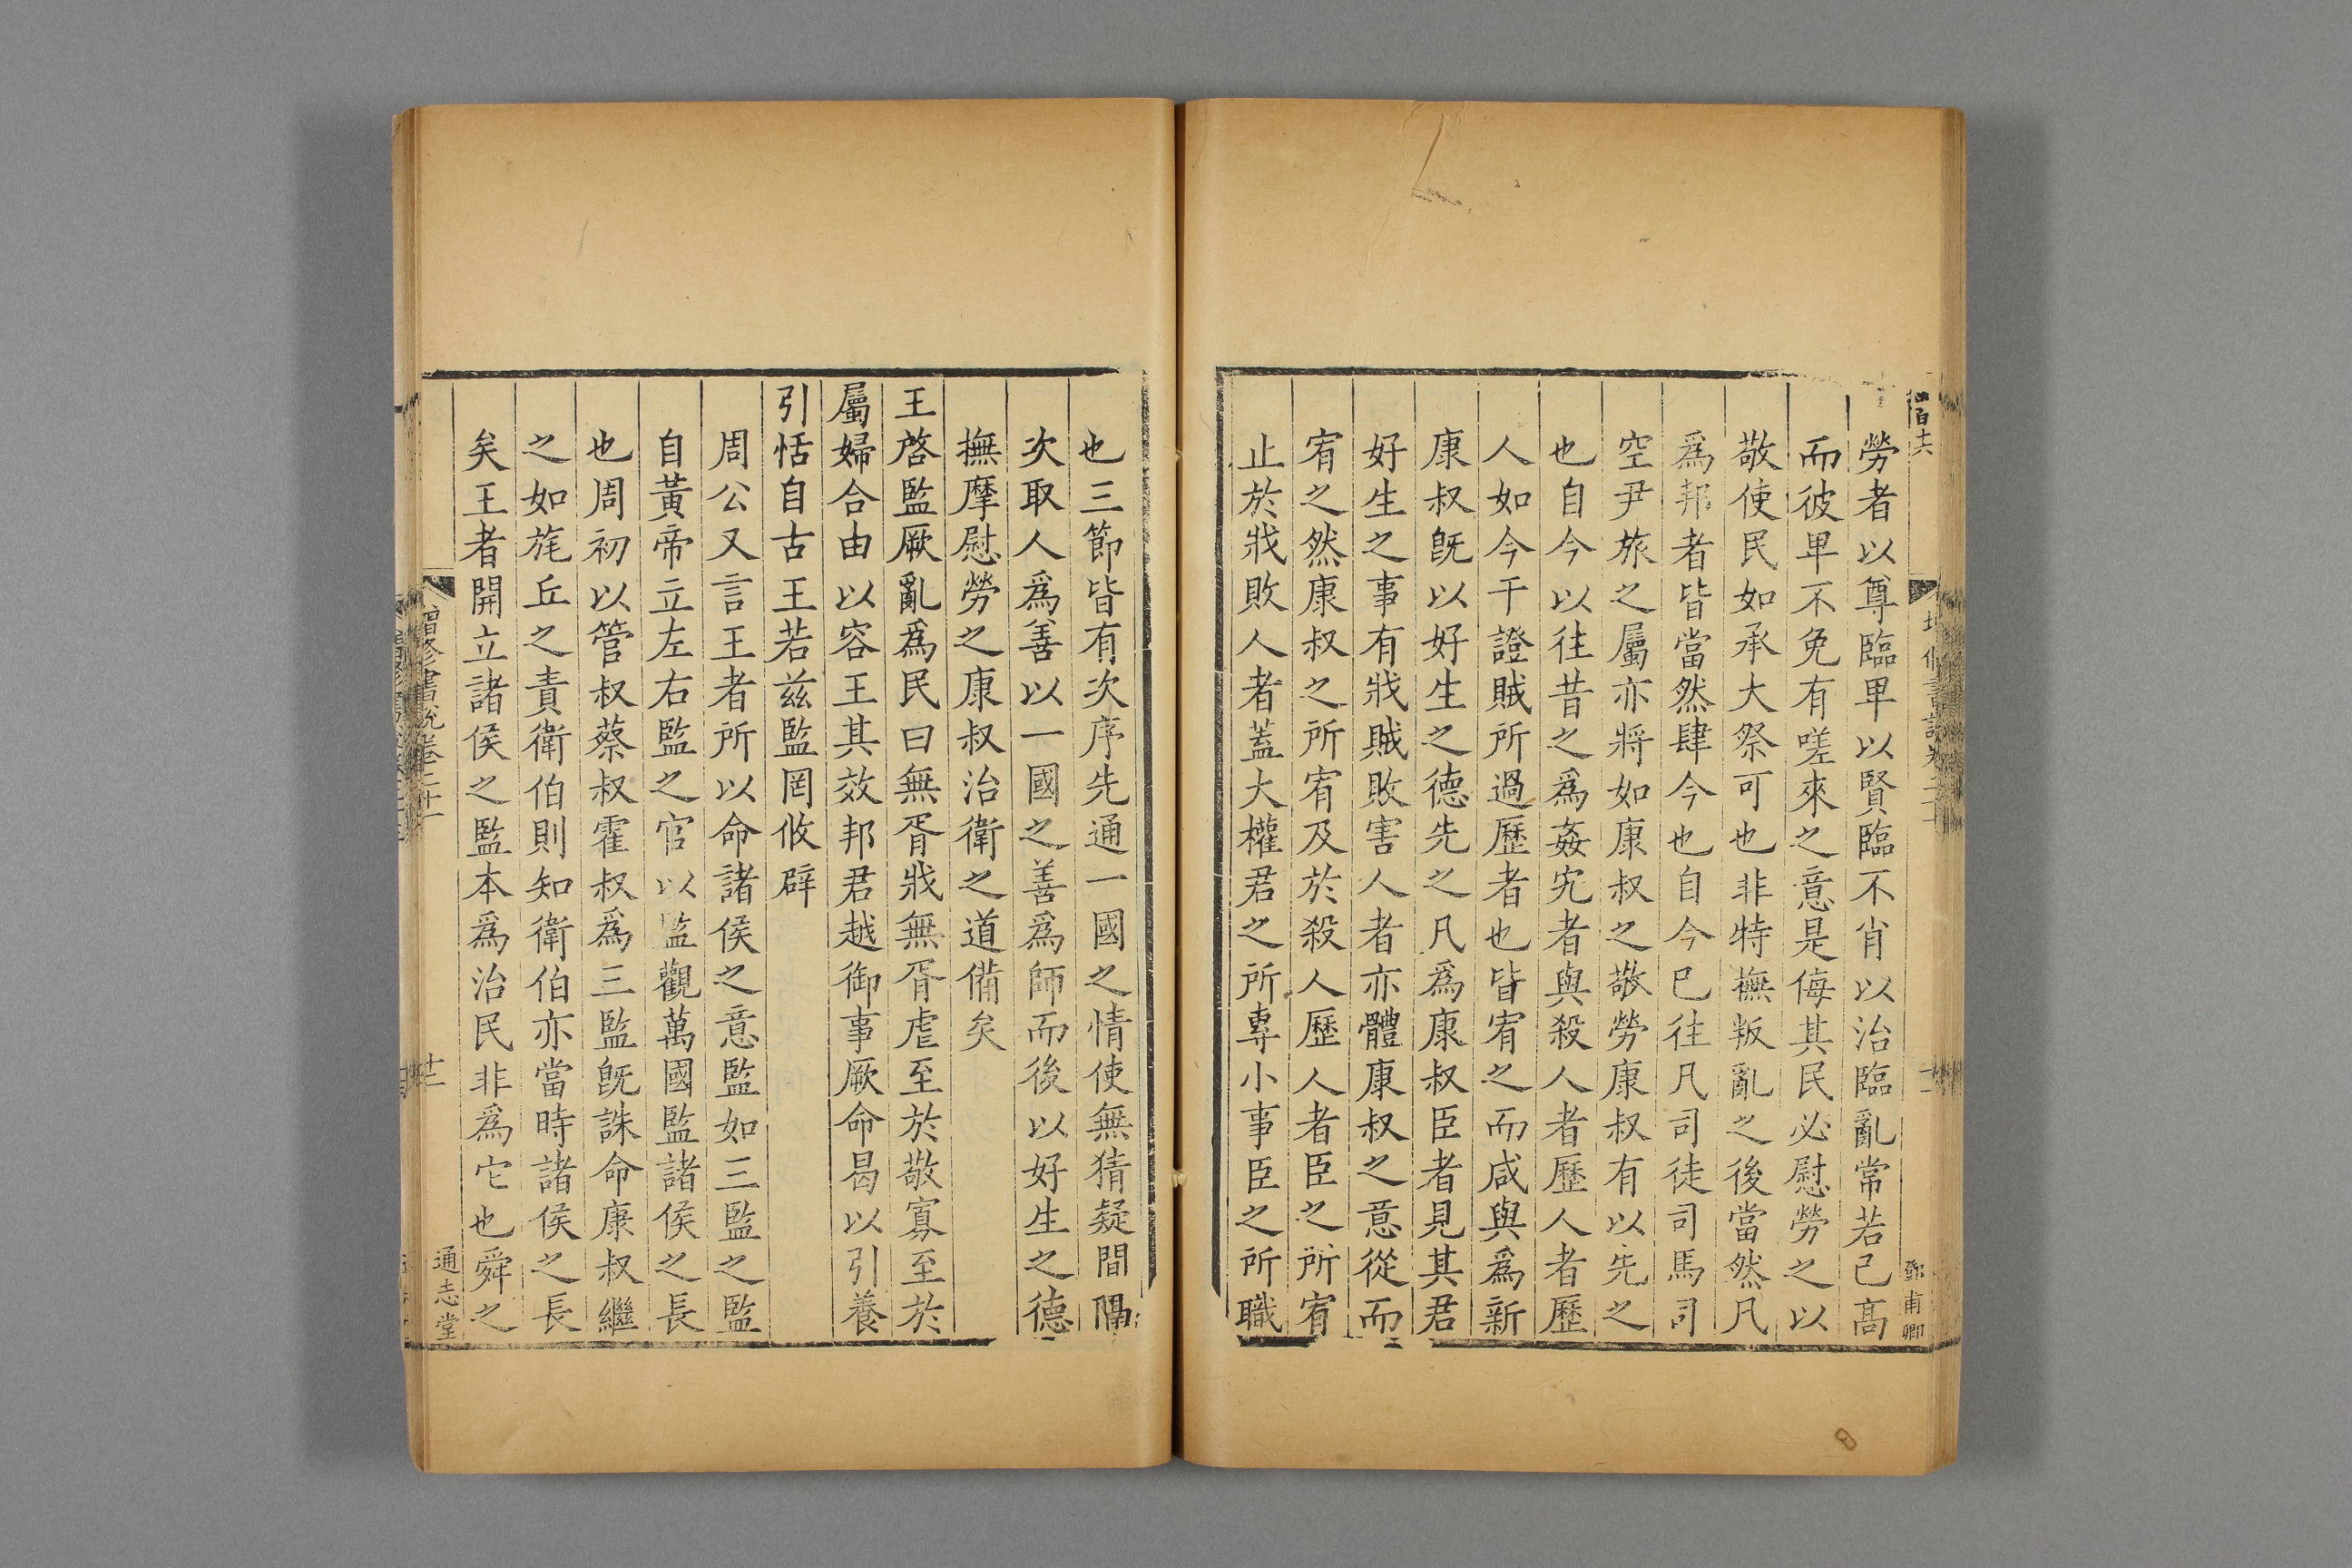 勞者以尊臨卑以賢臨不肖以治臨亂常若己高
而彼卑不免有嗟來之意是侮其民必慰勞之以
敬使民如承大祭可也非特撫叛亂之後當然凡
爲邦者皆當然肆今也自今已往凡司徒司馬司
空尹旅之屬亦將如康叔之敬勞康叔有以先之
也自今以往昔之爲姦宄者與殺人者歷人者歷
人如今干證賊所過歷者也皆宥之而咸與爲新
康叔旣以好生之德先之凡爲康叔臣者見其君
好生之事有戕賊敗害人者亦體康叔之意從而
宥之然康叔之所宥及於殺人歷人者臣之所宥
止於戕敗人者蓋大權君之所專小事臣之所職
鄧甫卿
也三節皆有次序先通一國之情使無猜疑間隔
次取人爲善以一國之善爲師而後以好生之德
撫摩慰勞之康叔治衛之道備矣
王啓監厥亂爲民曰無胥戕無胥虐至於敬寡至於
屬婦合由以容王其效邦君越御事厥命曷以引養
引恬自古王若兹監罔攸辟
周公又言王者所以命諸侯之意監如三監之監
自黃帝立左右監之官以監觀萬國監諸侯之長
也周初以管叔蔡叔霍叔爲三監旣誅命康叔繼
之如旄丘之責衛伯則知衛伯亦當時諸侯之長
矣王者開立諸侯之監本爲治民非爲它也舜之
增修書說卷二十一
十二
通志堂